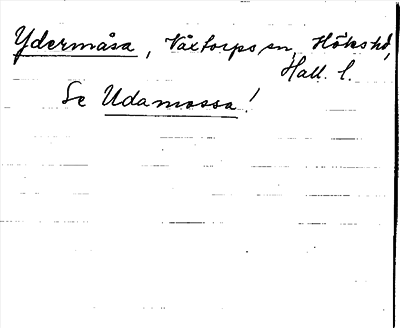 Ydermåsa, Växtorps sn, Höks hd,
Hall. l.
Se Udamossa!